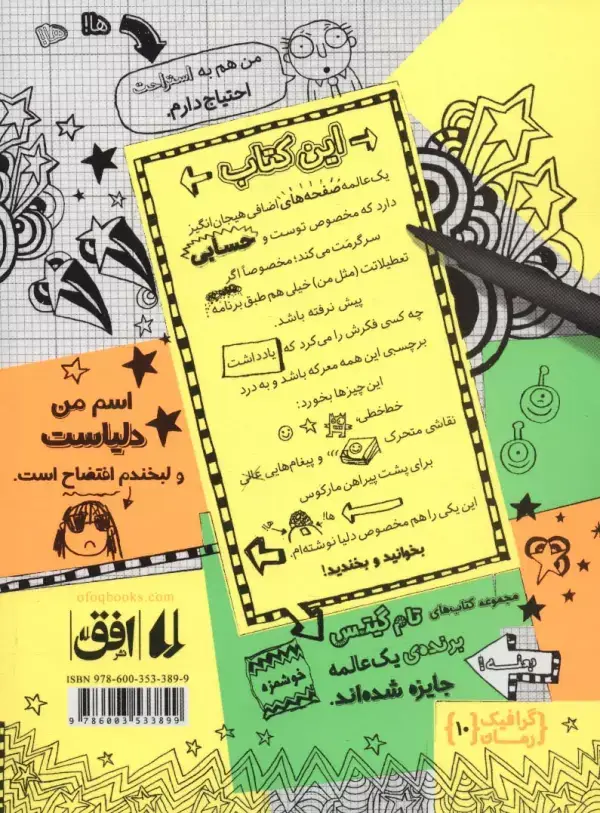 ها!
ها!
من هم به استراحت
احتیاج دارم.
این کتاب
یک‌عالمه صفحه‌های اضافی هیجان‌انگیز
دارد که مخصوص توست و حسابی
سرگرمت می‌کند؛ مخصوصاً اگر
تعطیلاتت (مثل من) خیلی هم طبق برنامه
پیش نرفته باشد.
چه کسی فکرش را می‌کرد که یادداشت
برچسبی این همه معرکه باشد و به درد
این چیزها بخورد:
خط‌خطی
نقاشی متحرک و پیغام‌هایی عالی
برای پشت پیراهن مارکوس
ها! ها!
این یکی را هم مخصوص دلیا نوشته‌ام.
بخوانید و بخندید!
اسم من
دلیاست
و لبخندم افتضاح است.
ofoqbooks.com
نشر افق
ISBN 978-600-353-389-9
9 786003 533899
مجموعه کتاب‌های تام گیتس
برنده‌ی یک‌عالمه
جایزه شده‌اند.
خوشمزه
گرافیک
رمان
{۱۰}